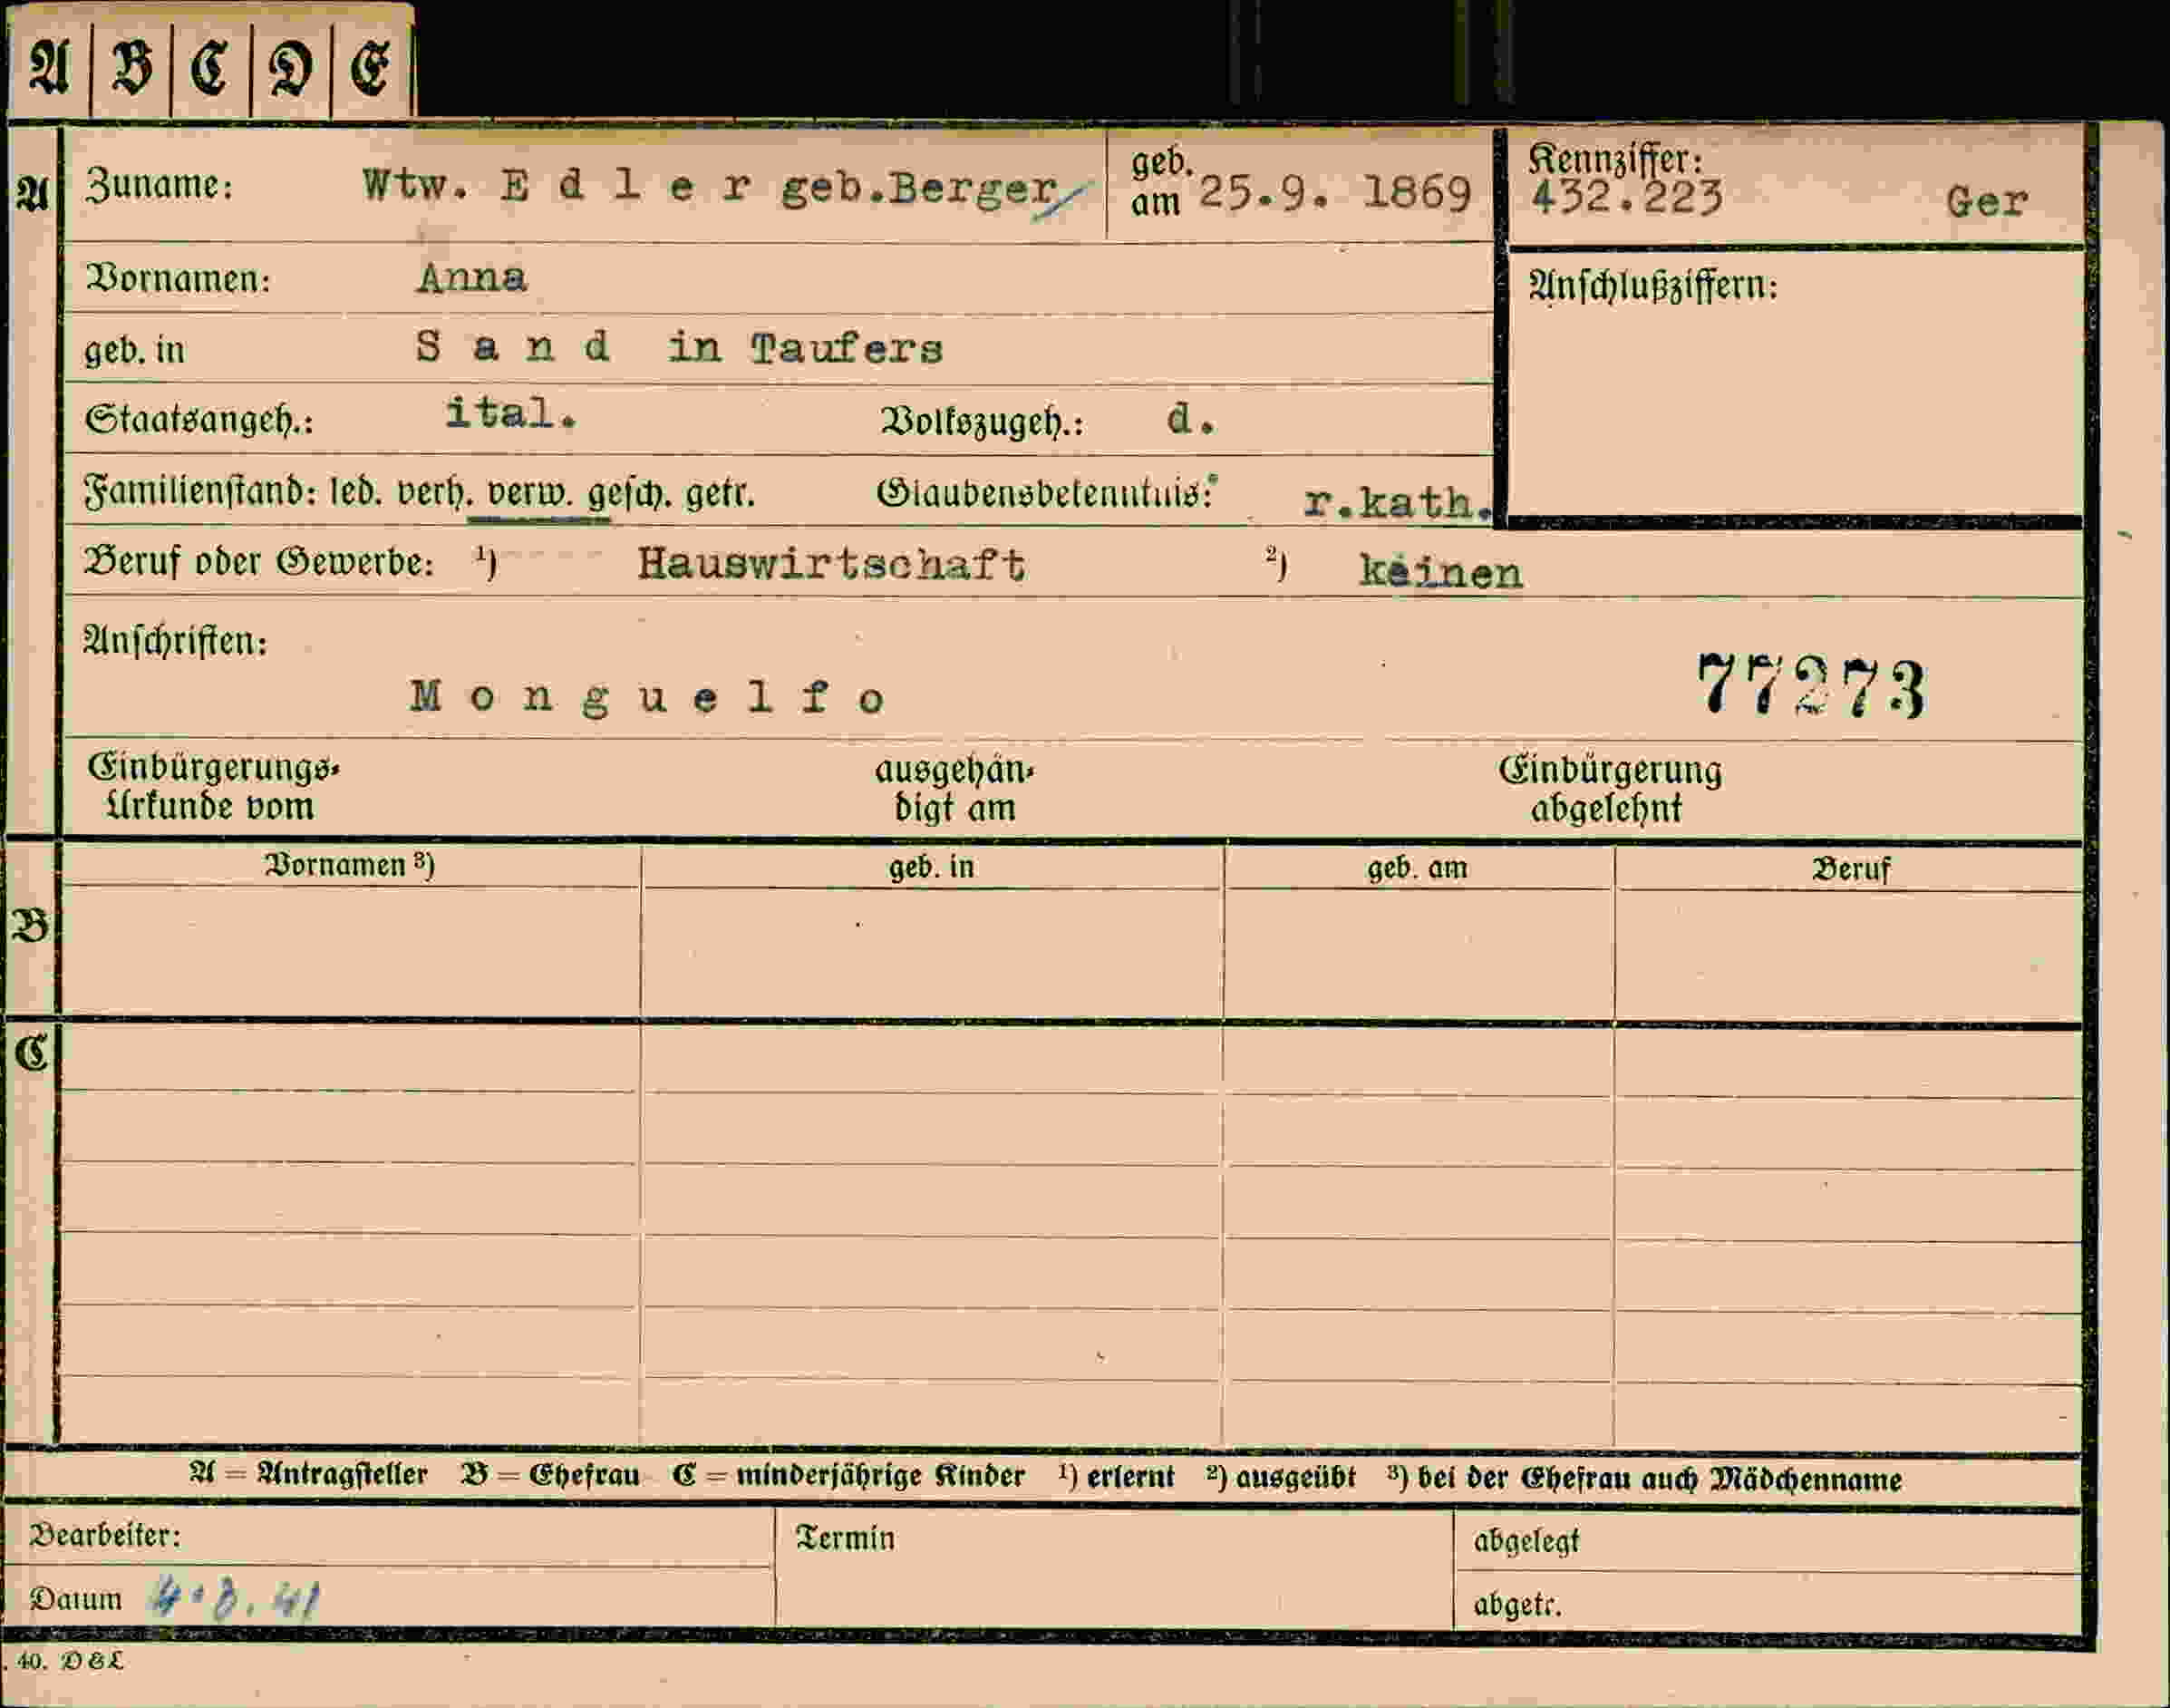 A B C D E
A Zuname: Wtw. E d l e r geb.Berger geb. am 25.9. 1869 Kennziffer: 432.223 Ger
Vornamen: Anna Anschlußziffern:
geb. in S a n d in Taufers
Staatsangeh.: ital. Volkszugeh.: d.
Familienstand: led. verh. verw. gesch. getr. Glaubensbekenntnis: r.kath.
Beruf oder Gewerbe: ¹) Hauswirtschaft ²) keinen
Anschriften:
M o n g u e l f o 77273
Einbürgerungs- ausgehän- Einbürgerung
Urkunde vom digt am abgelehnt
Vornamen ³) geb. in geb. am Beruf
B
C
A = Antragsteller B = Ehefrau C = minderjährige Kinder ¹) erlernt ²) ausgeübt ³) bei der Ehefrau auch Mädchenname
Bearbeiter: Termin abgelegt
Datum 4.3.41 abgetr.
. 40. D & L